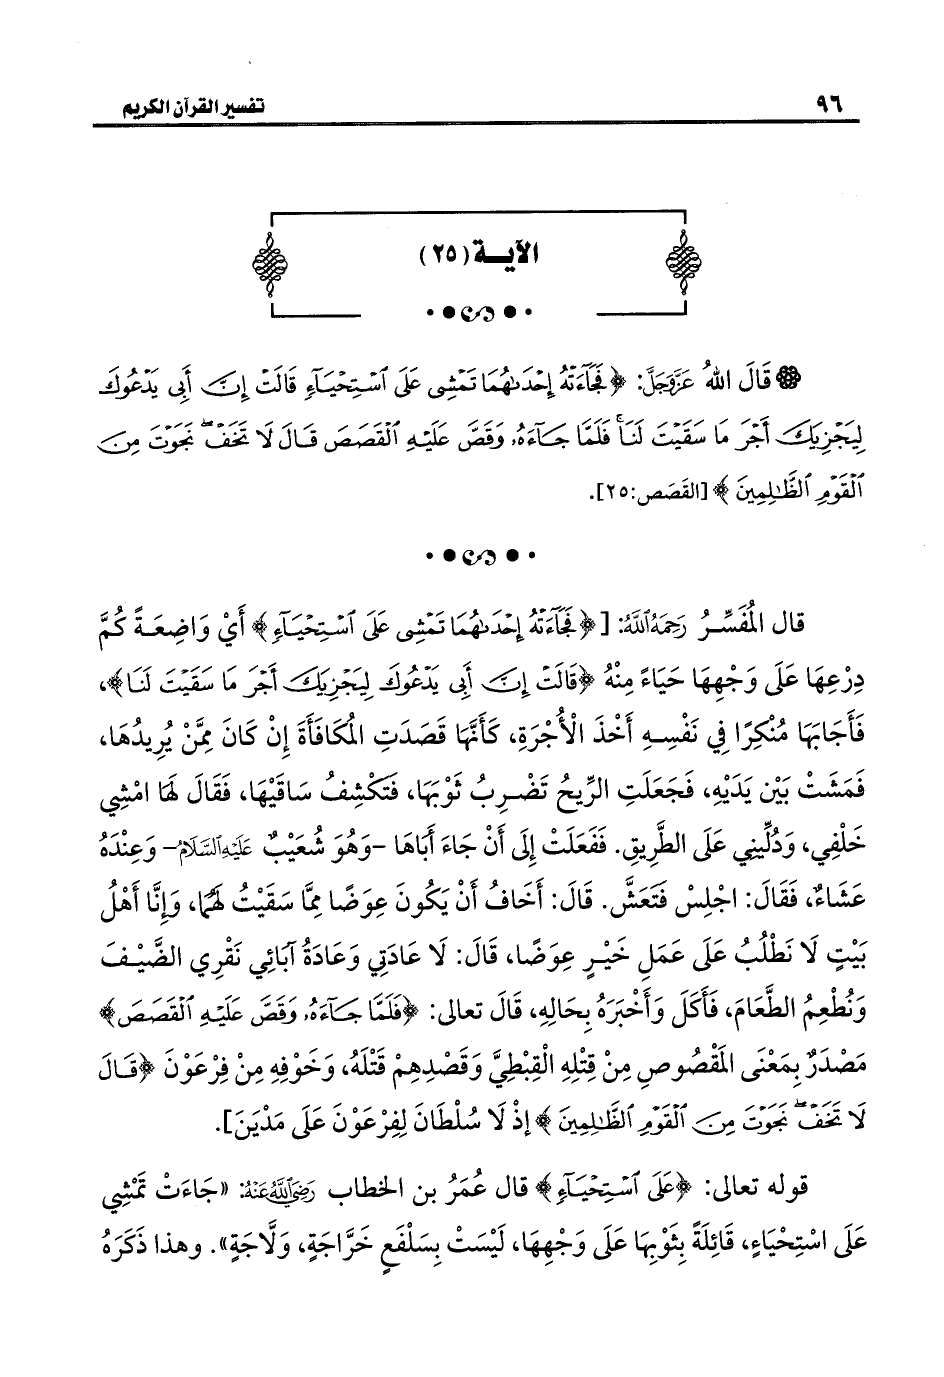 ٩٦ تفسير القرآن الكريم
الآيــة (٢٥)
قَالَ اللهُ عَزَّوَجَلَّ: ﴿فَجَآءَتْهُ إِحْدَىٰهُمَا تَمْشِى عَلَى ٱسْتِحْيَآءٍ قَالَتْ إِنَّ أَبِى يَدْعُوكَ
لِيَجْزِيَكَ أَجْرَ مَا سَقَيْتَ لَنَا ۚ فَلَمَّا جَآءَهُۥ وَقَصَّ عَلَيْهِ ٱلْقَصَصَ قَالَ لَا تَخَفْ ۖ نَجَوْتَ مِنَ
ٱلْقَوْمِ ٱلظَّـٰلِمِينَ﴾ [القَصَص:٢٥].
قال المُفَسِّرُ رَحِمَهُ اللَّهُ: [﴿فَجَآءَتْهُ إِحْدَىٰهُمَا تَمْشِى عَلَى ٱسْتِحْيَآءٍ﴾ أَيْ وَاضِعَةً كُمَّ
دِرْعِهَا عَلَى وَجْهِهَا حَيَاءً مِنْهُ ﴿قَالَتْ إِنَّ أَبِى يَدْعُوكَ لِيَجْزِيَكَ أَجْرَ مَا سَقَيْتَ لَنَا﴾،
فَأَجَابَهَا مُنْكِرًا فِي نَفْسِهِ أَخْذَ الْأُجْرَةِ، كَأَنَّهَا قَصَدَتِ المُكَافَأَةَ إِنْ كَانَ مِمَّنْ يُرِيدُهَا،
فَمَشَتْ بَيْن يَدَيْهِ، فَجَعَلَتِ الرِّيحُ تَضْرِبُ ثَوْبَهَا، فَتَكْشِفُ سَاقَيْهَا، فَقَالَ لَهَا امْشِي
خَلْفِي، وَدُلِّينِي عَلَى الطَّرِيقِ. فَفَعَلَتْ إِلَى أَنْ جَاءَ أَبَاهَا -وَهُوَ شُعَيْبٌ عَلَيْهِ السَّلَامُ- وَعِنْدَهُ
عَشَاءٌ، فَقَالَ: اجْلِسْ فَتَعَشَّ. قَالَ: أَخَافُ أَنْ يَكُونَ عِوَضًا مِمَّا سَقَيْتُ لَهُمَا، وَإِنَّا أَهْلُ
بَيْتٍ لَا نَطْلُبُ عَلَى عَمَلِ خَيْرٍ عِوَضًا، قَالَ: لَا عَادَتِي وَعَادَةُ آبَائِي نَقْرِي الضَّيْفَ
وَنُطْعِمُ الطَّعَامَ، فَأَكَلَ وَأَخْبَرَهُ بِحَالِهِ، قَالَ تعالى: ﴿فَلَمَّا جَآءَهُۥ وَقَصَّ عَلَيْهِ ٱلْقَصَصَ﴾
مَصْدَرٌ بِمَعْنَى المَقْصُوصِ مِنْ قِتْلِهِ الْقِبْطِيَّ وَقَصْدِهِمْ قَتْلَهُ، وَخَوْفِهِ مِنْ فِرْعَوْنَ ﴿قَالَ
لَا تَخَفْ ۖ نَجَوْتَ مِنَ ٱلْقَوْمِ ٱلظَّـٰلِمِينَ﴾ إِذْ لَا سُلْطَانَ لِفِرْعَوْنَ عَلَى مَدْيَنَ].
قوله تعالى: ﴿عَلَى ٱسْتِحْيَآءٍ﴾ قال عُمَرُ بن الخطاب رَضِيَ اللَّهُ عَنْهُ: «جَاءَتْ تَمْشِي
عَلَى اسْتِحْيَاءٍ، قَائِلَةً بِثَوْبِهَا عَلَى وَجْهِهَا، لَيْسَتْ بِسَلْفَعٍ خَرَّاجَةٍ، وَلَّاجَةٍ». وهذا ذَكَرَهُ